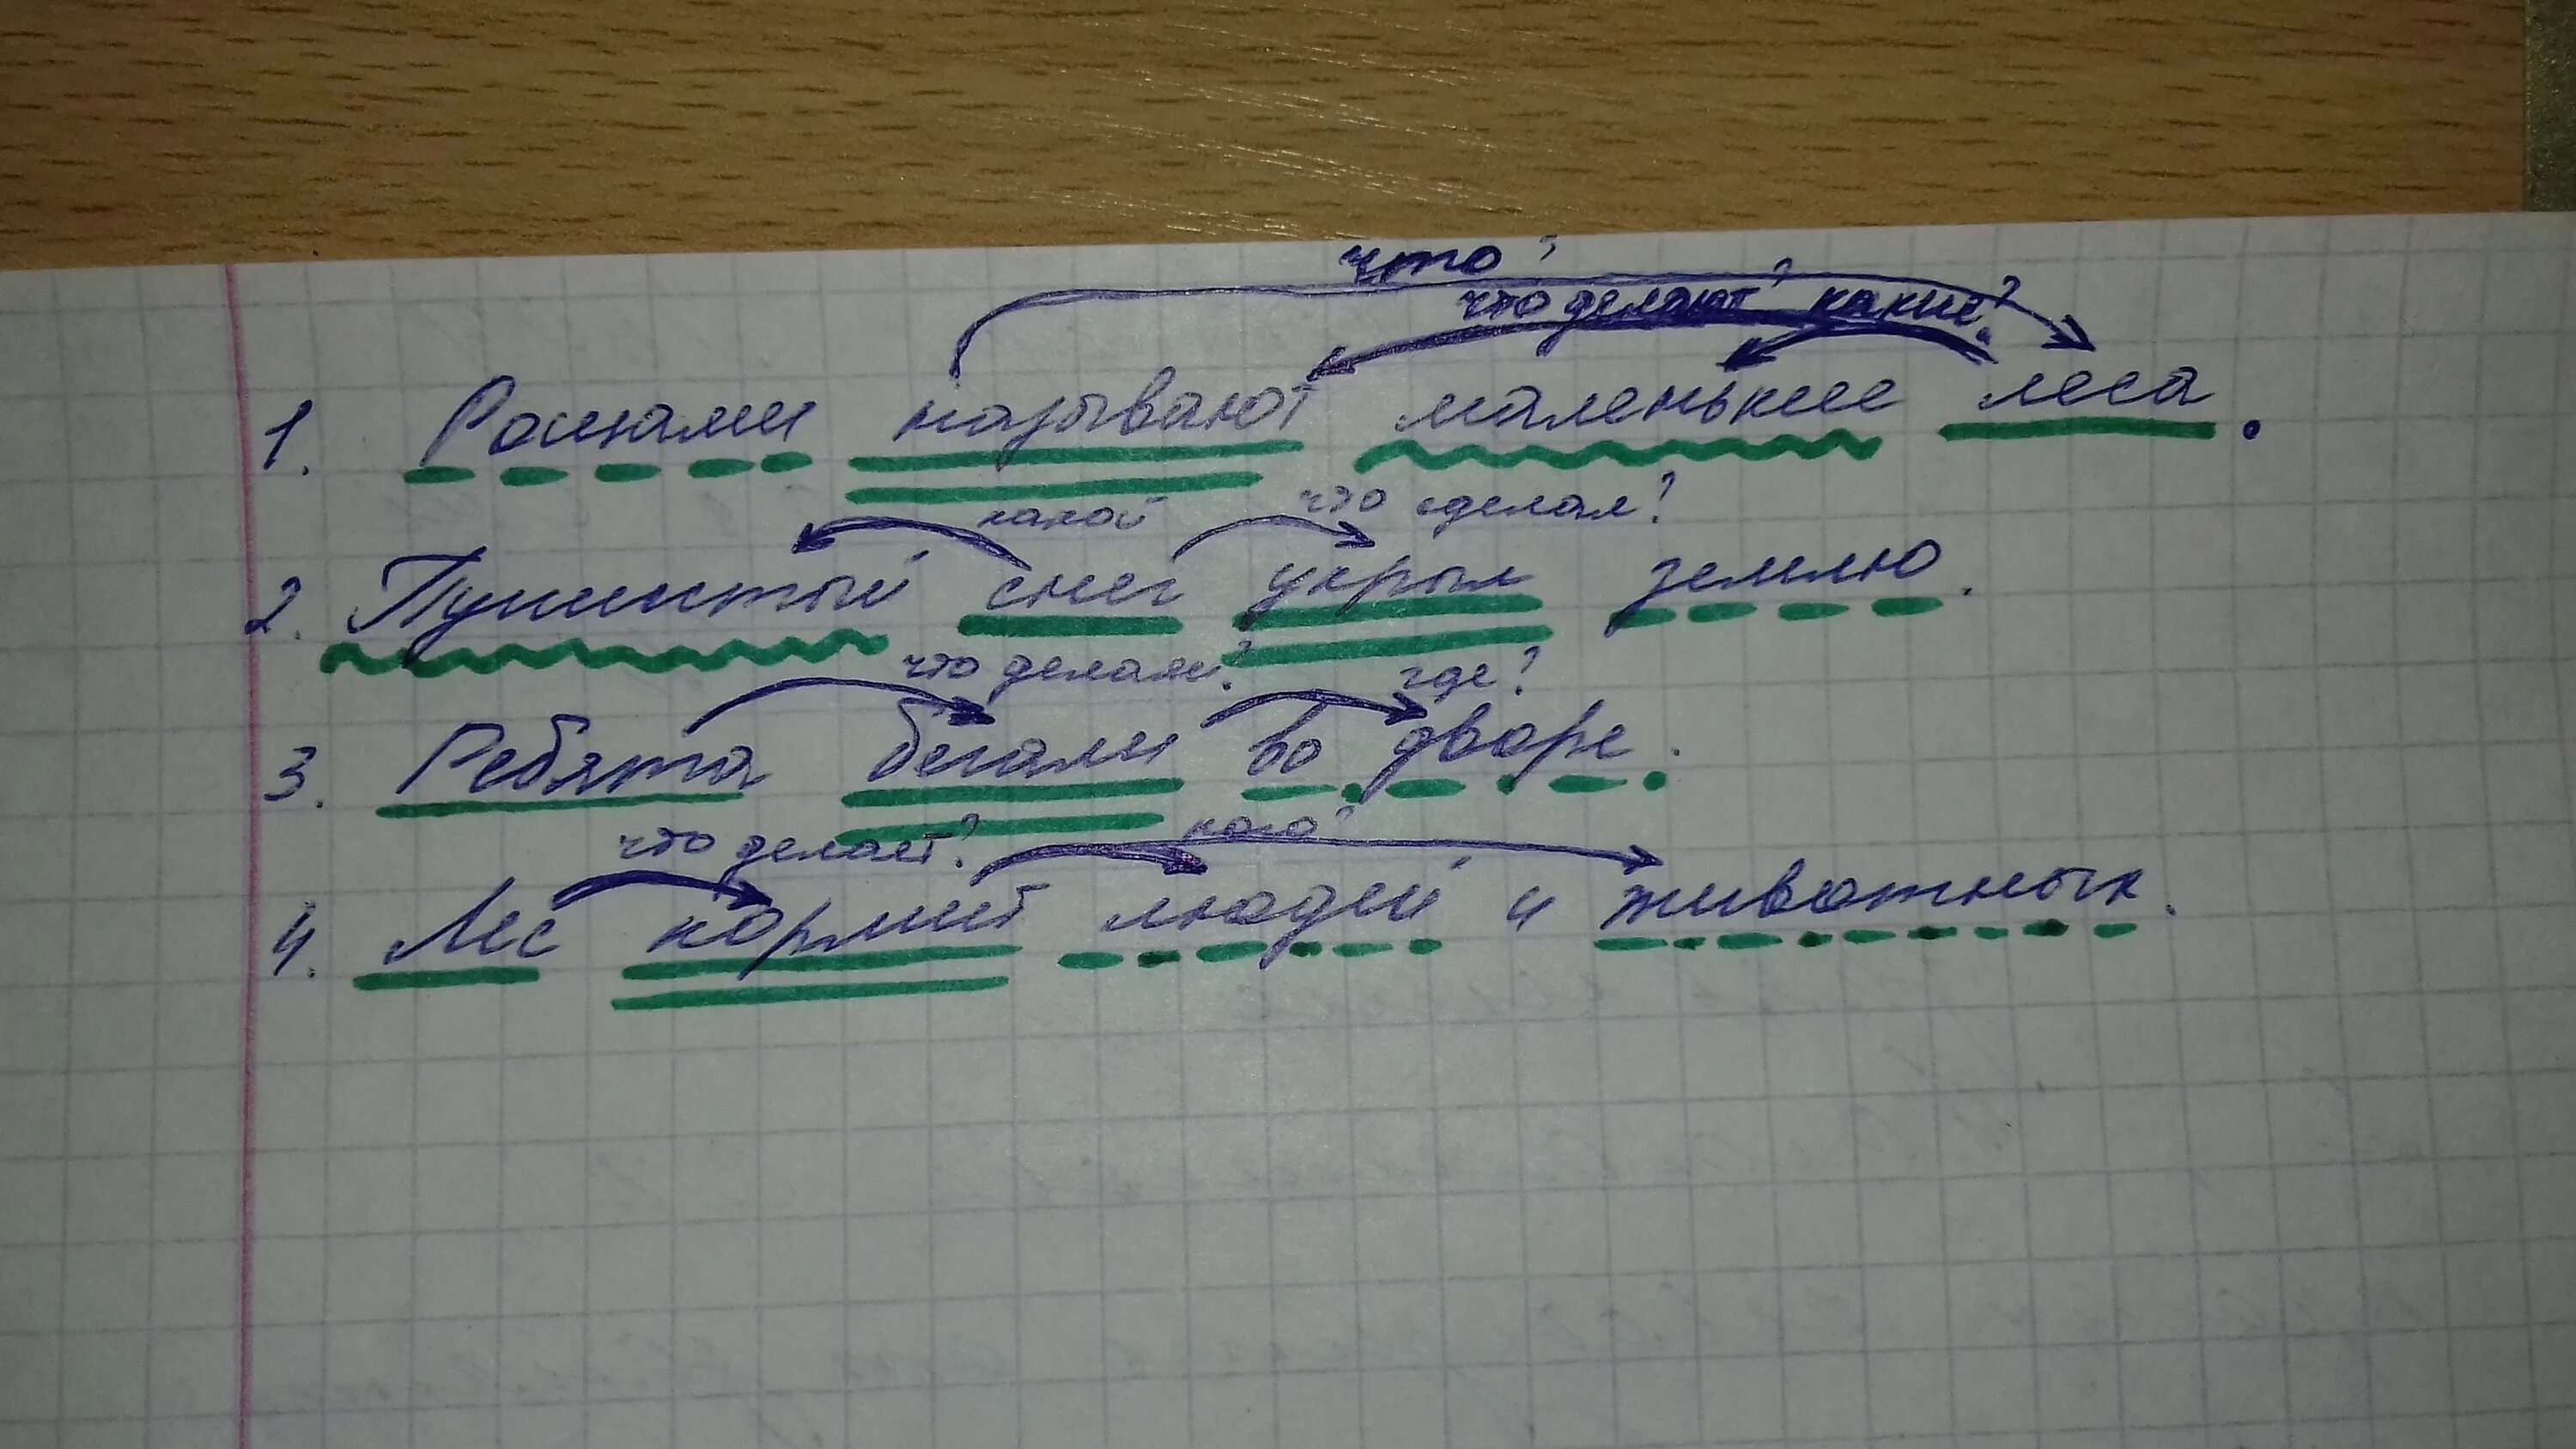 что?
что делают? какие?
1. Рощами называют маленькие леса.
какой что сделал?
2. Пушистый снег укрыл землю.
что делали? где?
3. Ребята бегали во дворе.
что делает? кого?
4. Лес кормит людей и животных.